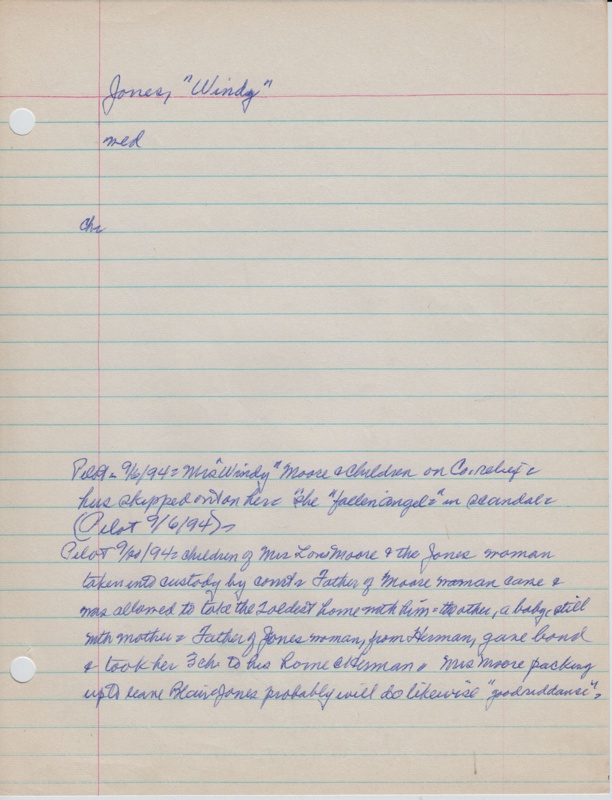 Jones, "Windy"
med
ch-
Pilot - 9/6/94 = Mrs "Windy" Moore & children on Co. relief &
hus skipped out on her = She "fallen angel" in scandal =
(Pilot 9/6/94) =
Pilot 9/20/94 = children of Mrs Lon Moore & the Jones woman
taken into custody by court = Father of Moore woman came &
was allowed to take the 2 oldest home with him = the other, a baby, still
with mother = Father of Jones woman, from Herman, gave bond
& took her 3 ch to his home @ Herman = Mrs Moore packing
up to leave Blair = Jones probably will do likewise "good riddance" =